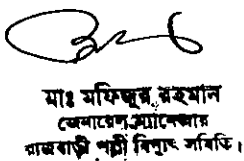 মাঃ মফিজুর রহমান
জেনারেল ম্যানেজার
রাজবাড়ী পল্লী বিদ্যুৎ সমিতি।